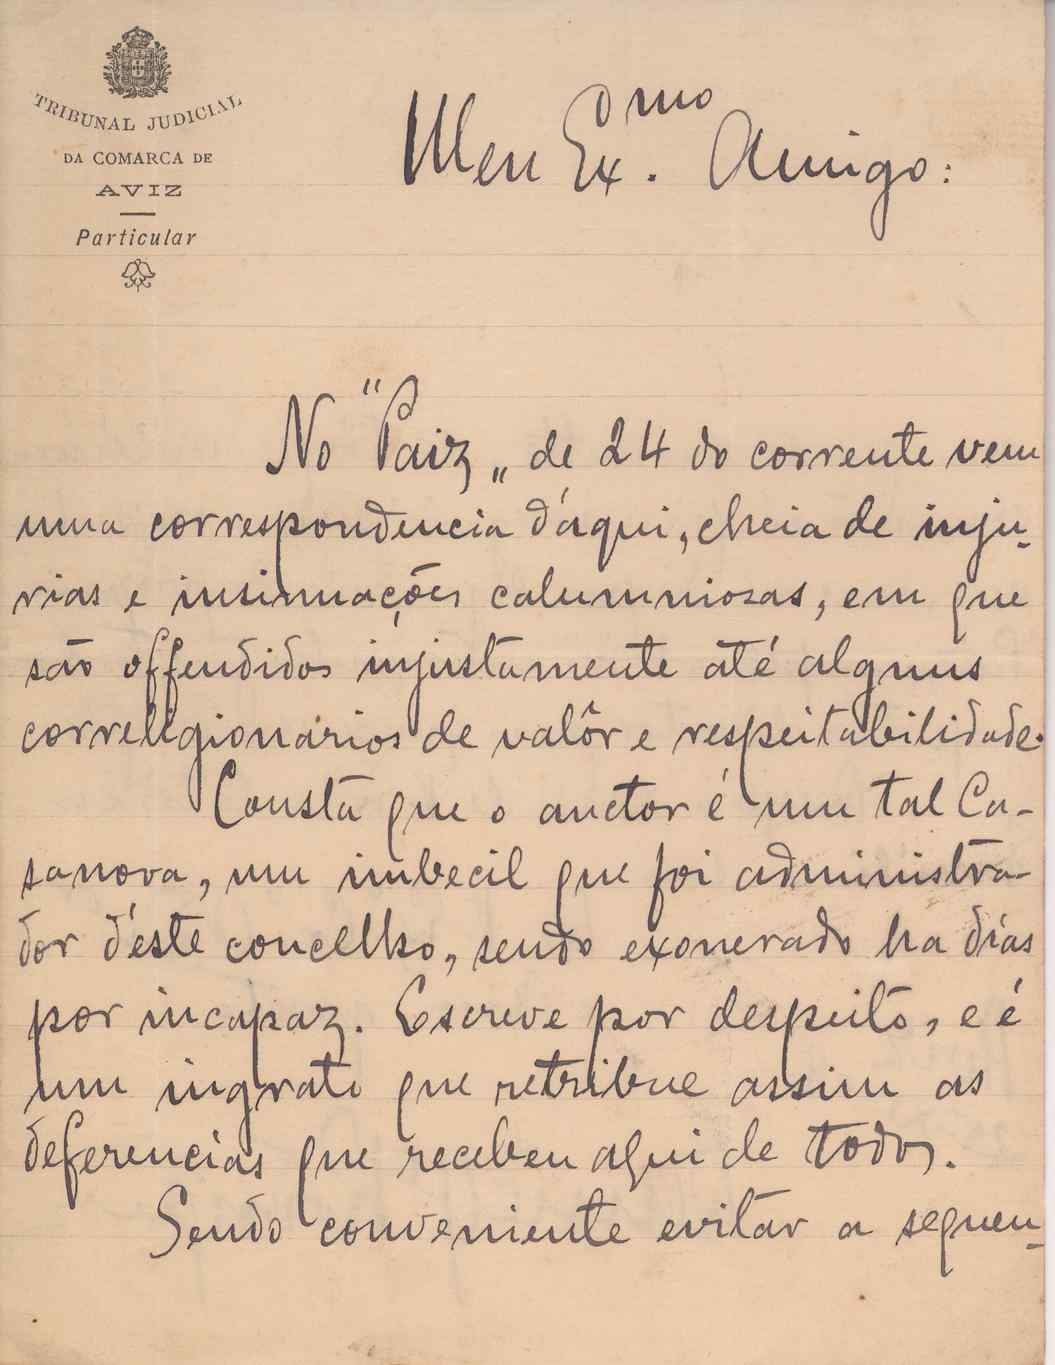 TRIBUNAL JUDICIAL
DA COMARCA DE
AVIZ
Particular
Meu Ex.mo Amigo:
No "Paiz„ de 24 do corrente vem
uma correspondencia d'aqui, cheia de inju-
rias e insinuações calumniosas, em que
são offendidos injustamente até alguns
correligionários de valôr e respeitabilidade.
Consta que o auctor é um tal Ca-
sanova, um imbecil que foi administra-
dor d'éste concelho, sendo exonerado ha dias
por incapaz. Escreve por despeito, e é
um ingrato que retribue assim as
deferencias que recebeu aqui de todos.
Sendo conveniente evitar a sequen-